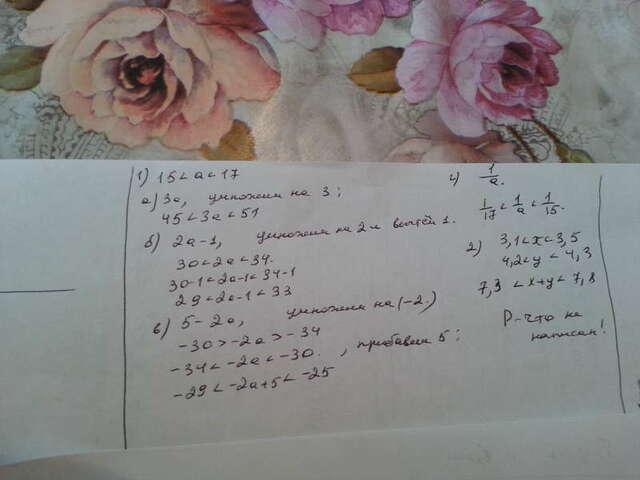 1) 15 < a < 17
а) 3a, умножим на 3;
45 < 3a < 51
б) 2a-1, умножим на 2 и вычтем 1.
30 < 2a < 34.
30-1 < 2a-1 < 34-1
29 < 2a-1 < 33
в) 5-2a, умножим на (-2.)
-30 > -2a > -34
-34 < -2a < -30. , прибавим 5;
-29 < -2a+5 < -25
г) 1/a.
1/17 < 1/a < 1/15.
2) 3,1 < x < 3,5
4,2 < y < 4,3
7,3 < x+y < 7,8
P-что не
написан!